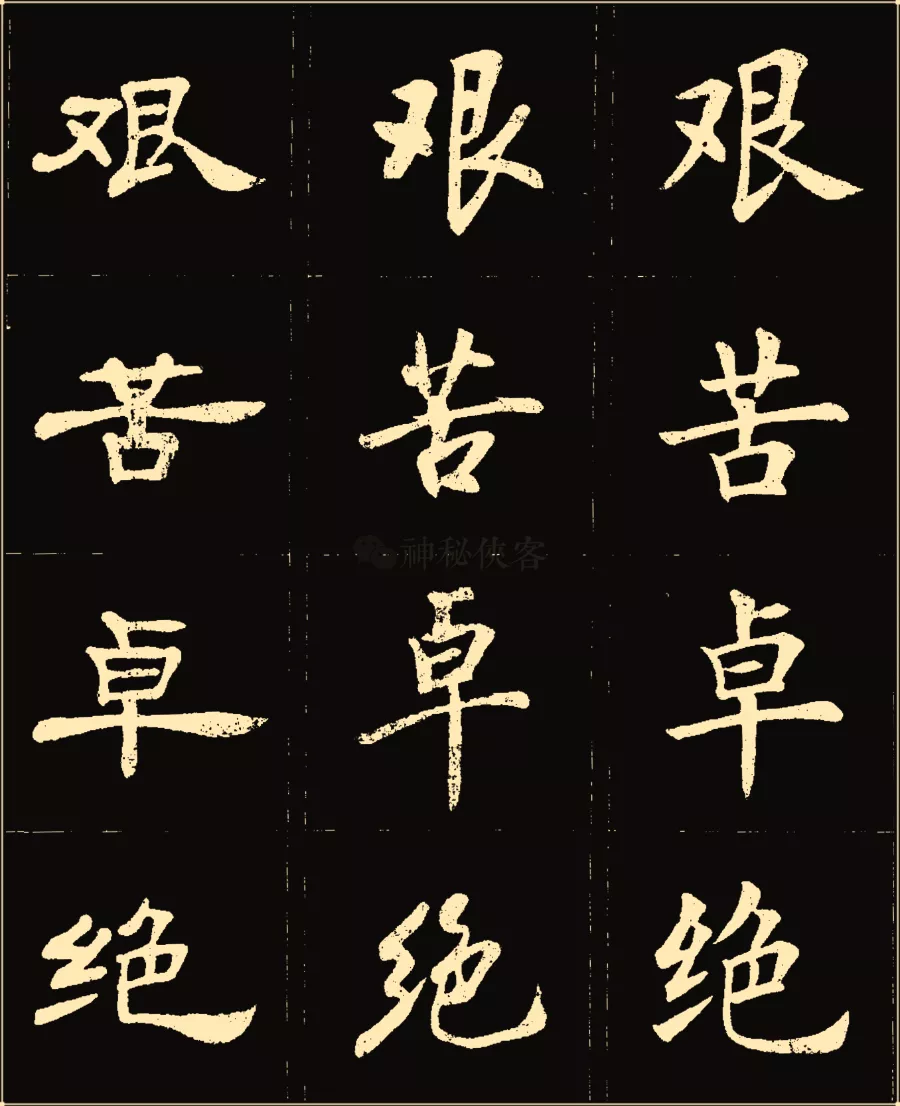 艰艰艰
苦苦苦
神秘侠客
卓卓卓
绝绝绝